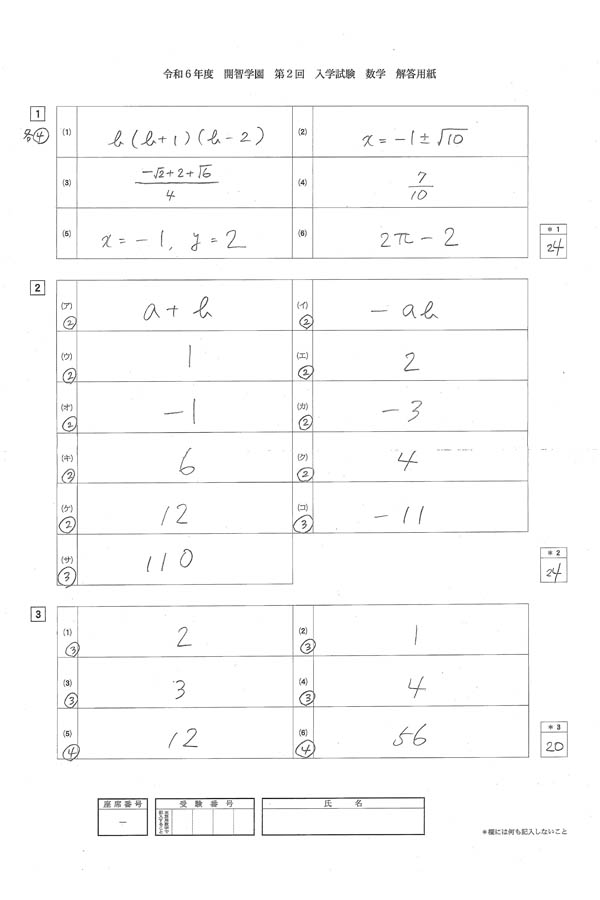 令和６年度 開智学園 第２回 入学試験 数学 解答用紙
1
各④ (1) b(b+1)(b-2) (2) x=-1±√10
(3) (-√2+2+√6)/4 (4) 7/10
(5) x=-1, y=2 (6) 2π-2
＊1
24
2
(ア) ② a+b (イ) ② -ab
(ウ) ② 1 (エ) ② 2
(オ) ② -1 (カ) ② -3
(キ) ② 6 (ク) ② 4
(ケ) ② 12 (コ) ③ -11
(サ) ③ 110
＊2
24
3
(1) ③ 2 (2) ③ 1
(3) ③ 3 (4) ③ 4
(5) ④ 12 (6) ④ 56
＊3
20
座席番号 受験番号 氏名
－
＊欄には何も記入しないこと